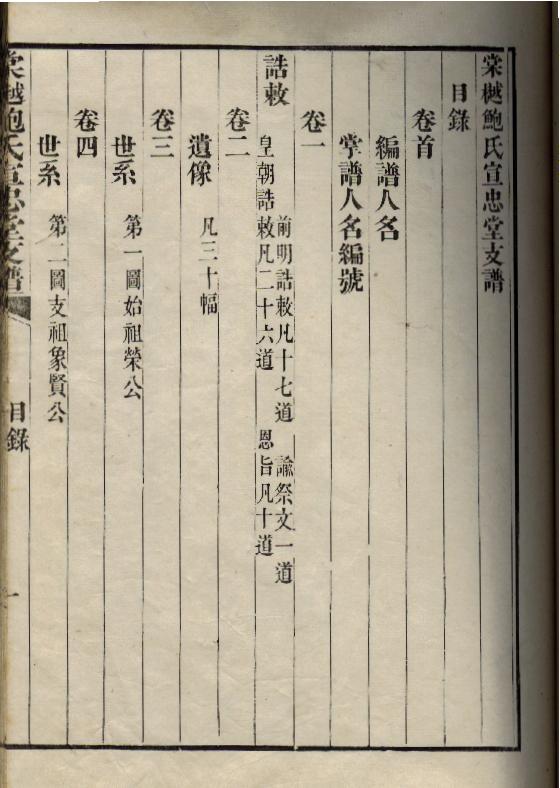 棠樾鮑氏宣忠堂支譜
目錄
卷首
編譜人名
掌譜人名編號
卷一
誥敕
前明誥敕凡十七道 諭祭文一道
皇朝誥敕凡二十六道 恩旨凡十道
卷二
遺像 凡三十幅
卷三
世系 第一圖始祖榮公
卷四
世系 第二圖支祖象賢公
棠樾鮑氏宣忠堂支譜 目錄 一